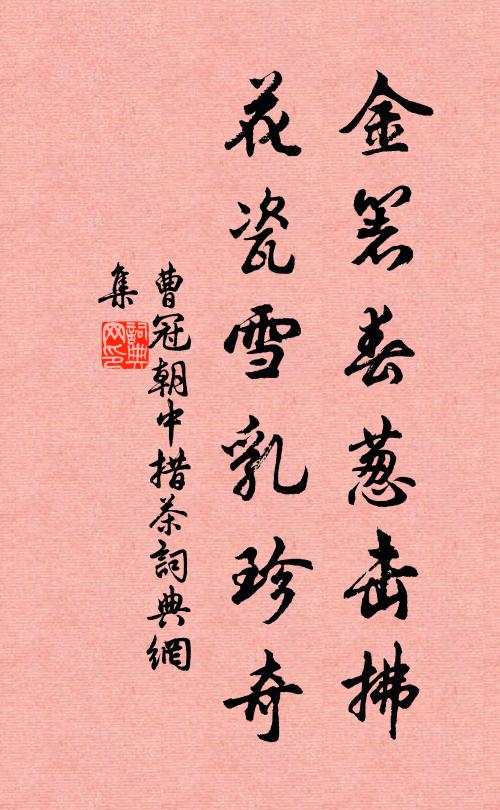 金箸春葱击拂
花瓷雪乳珍奇
曹冠朝中措茶詞典網
集
詞典网印